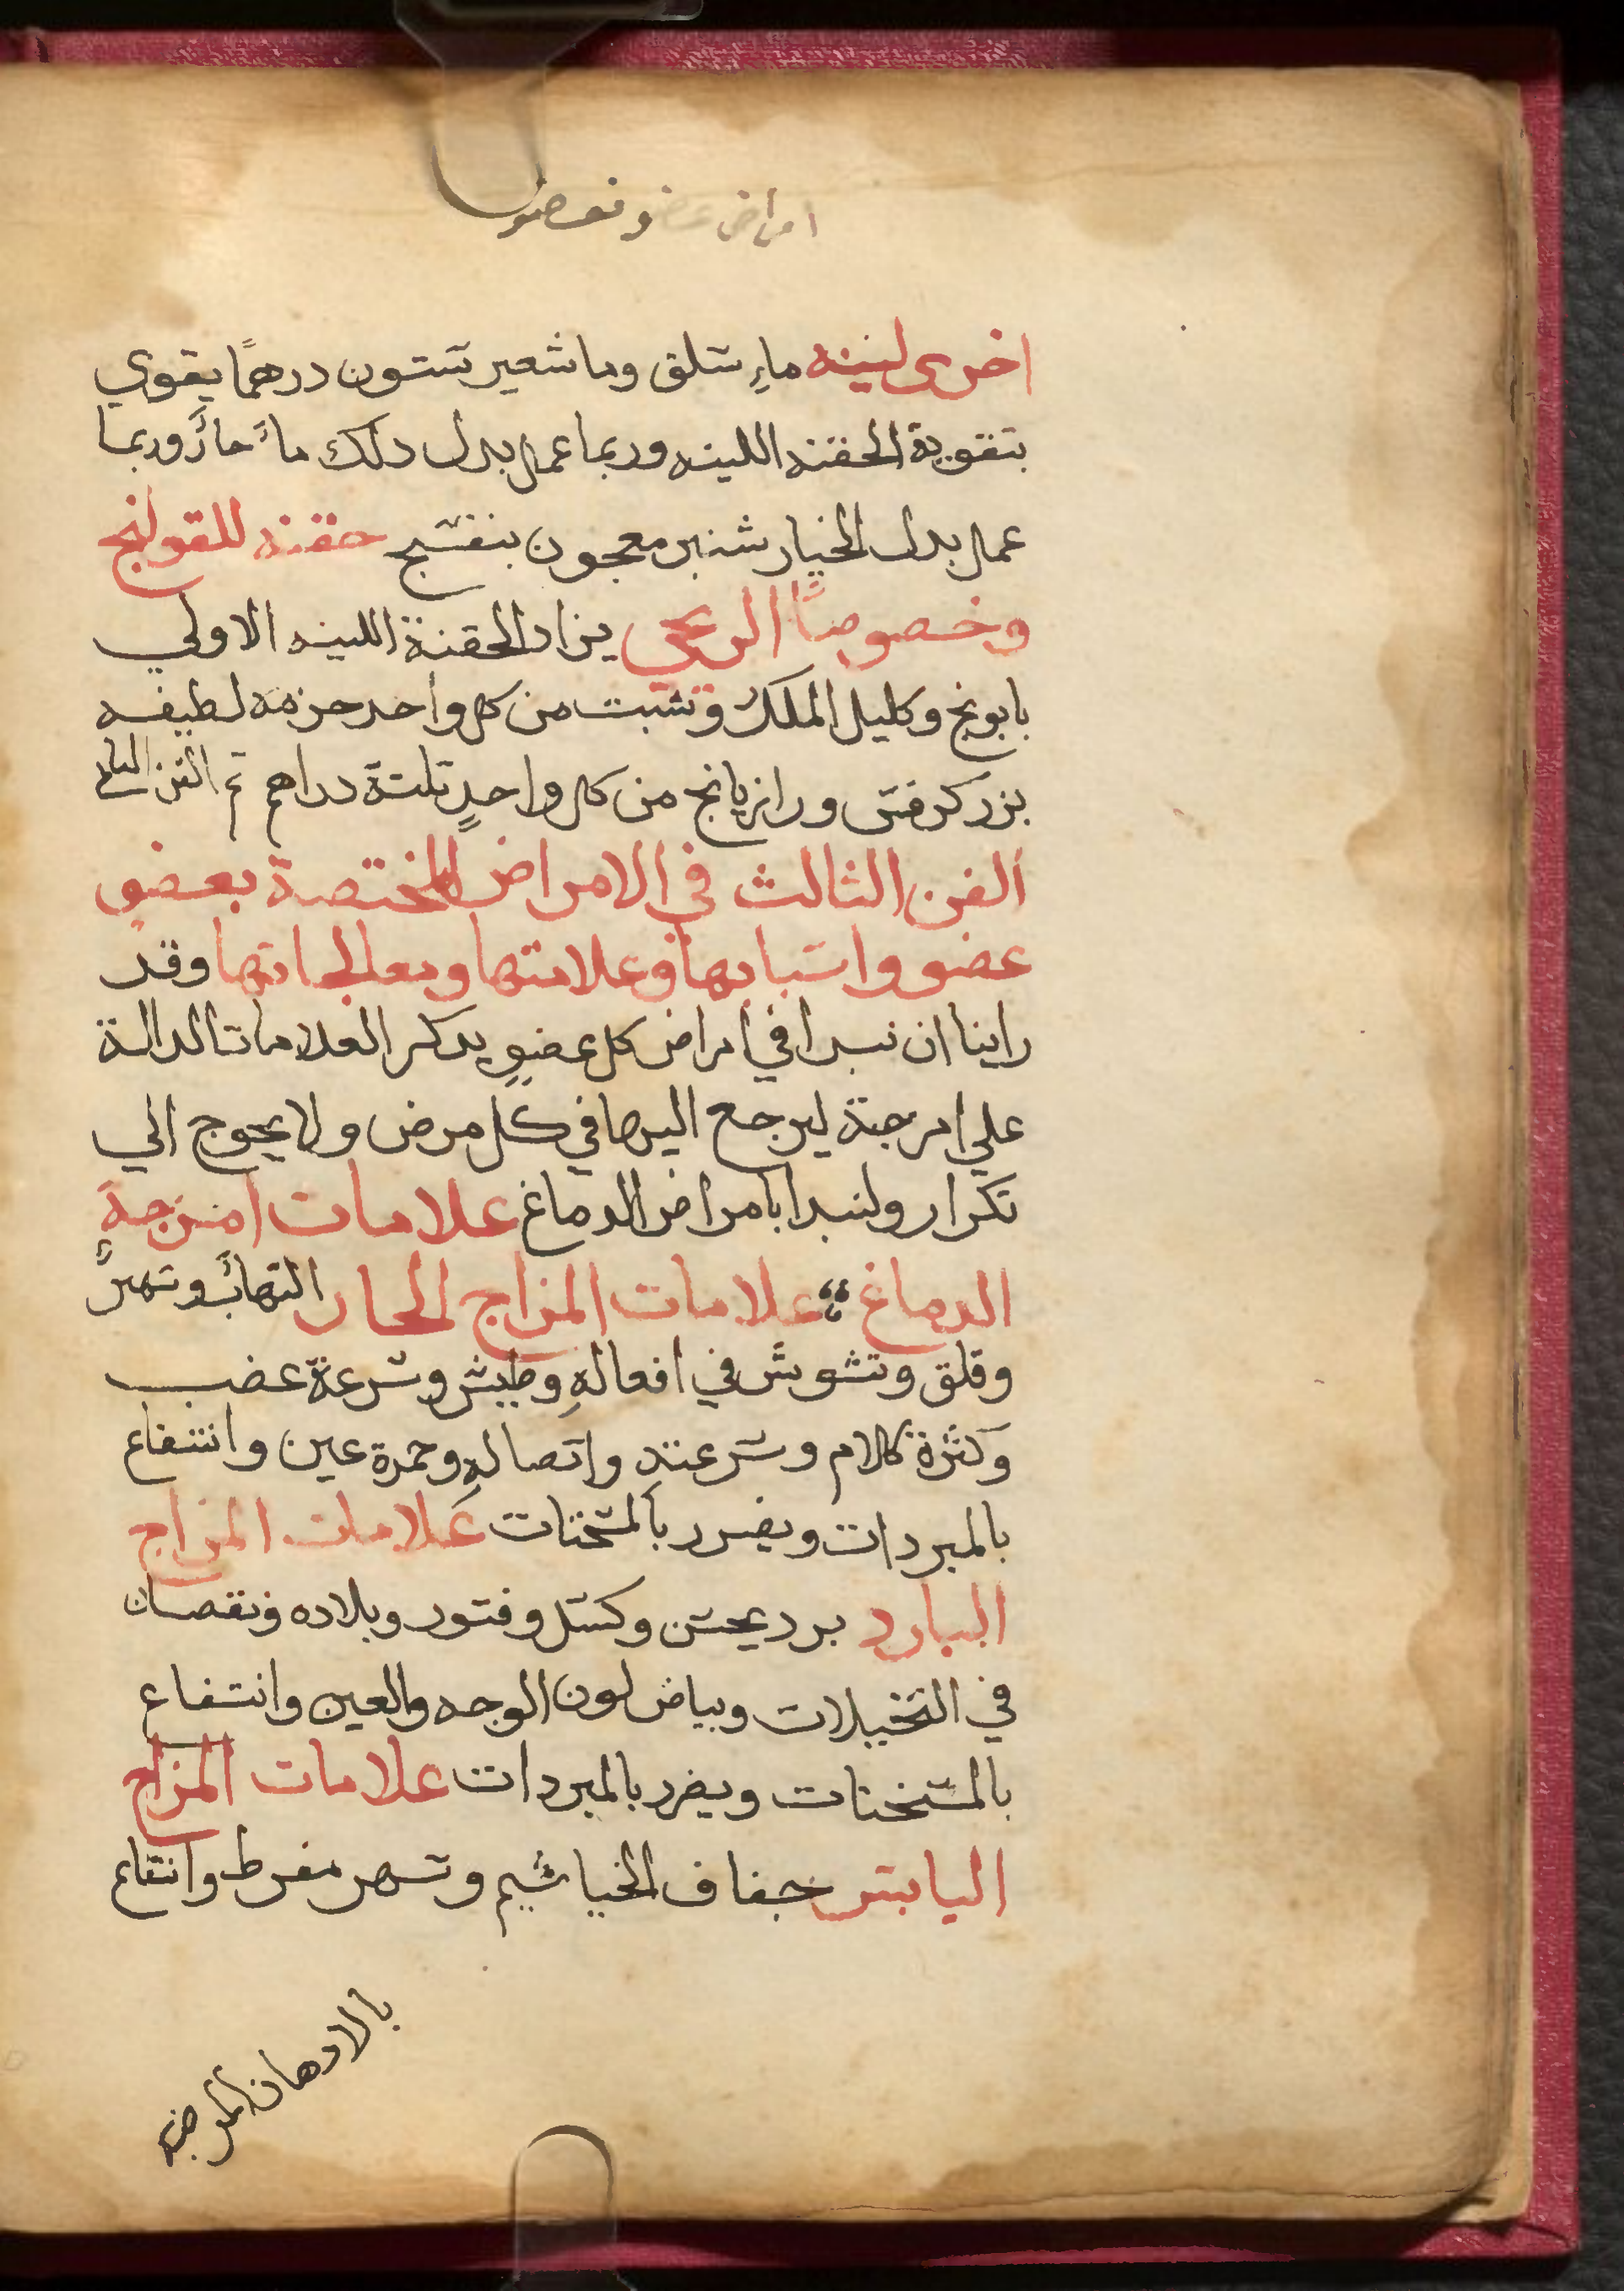 امراض عضو فعضو
اخرى لينه ماءِ سلق وما شعير ستون درهمًا يقوي
بتقوية الحقنه اللينه وربما عمل بدل دلك ماءً حارً وربما
عمل بدل الخيار شنبر معجون بنفسج حقنه للقولنج
وخصوصًا الريحي يزاد الحقنة اللينه الاولي
بابونج وكليل الملك وشبت من كل واحد حزمه لطيفه
بزر كرفس ورازيانج من كل واحدٍ تلتة دراهم تم الفن الثاني
الفن الثالث في الامراض المختصة بعضو
عضو واسبابها وعلامتها ومعالجاتها وقد
راينا ان نبدا في امراض كل عضوٍ بدكر العلامات الدالة
علي امزجتة ليرجع اليها في كل مرض ولا يحوج الي
تكرار ولنبدا بامراض الدماغ علامات امزجة
الدماغ علامات المزاج الحار التهابً وسهرً
وقلق وتشوش في افعالهِ وطيش وسرعة غضب
وكثرة كلام وسرعته واتصالهِ وحمرة عين وانتفاع
بالمبردات ويضرر بالمسخنات علامات المزاج
البارد برد يحس وكسل وفتور وبلاده ونقصان
في التخيلات وبياض لون الوجه والعين وانتفاع
بالمسخنات ويضرر بالمبردات علامات المزاج
اليابس جفاف الخياشيم وسهر مفرط وانتفاع
بالادهان المرطبه